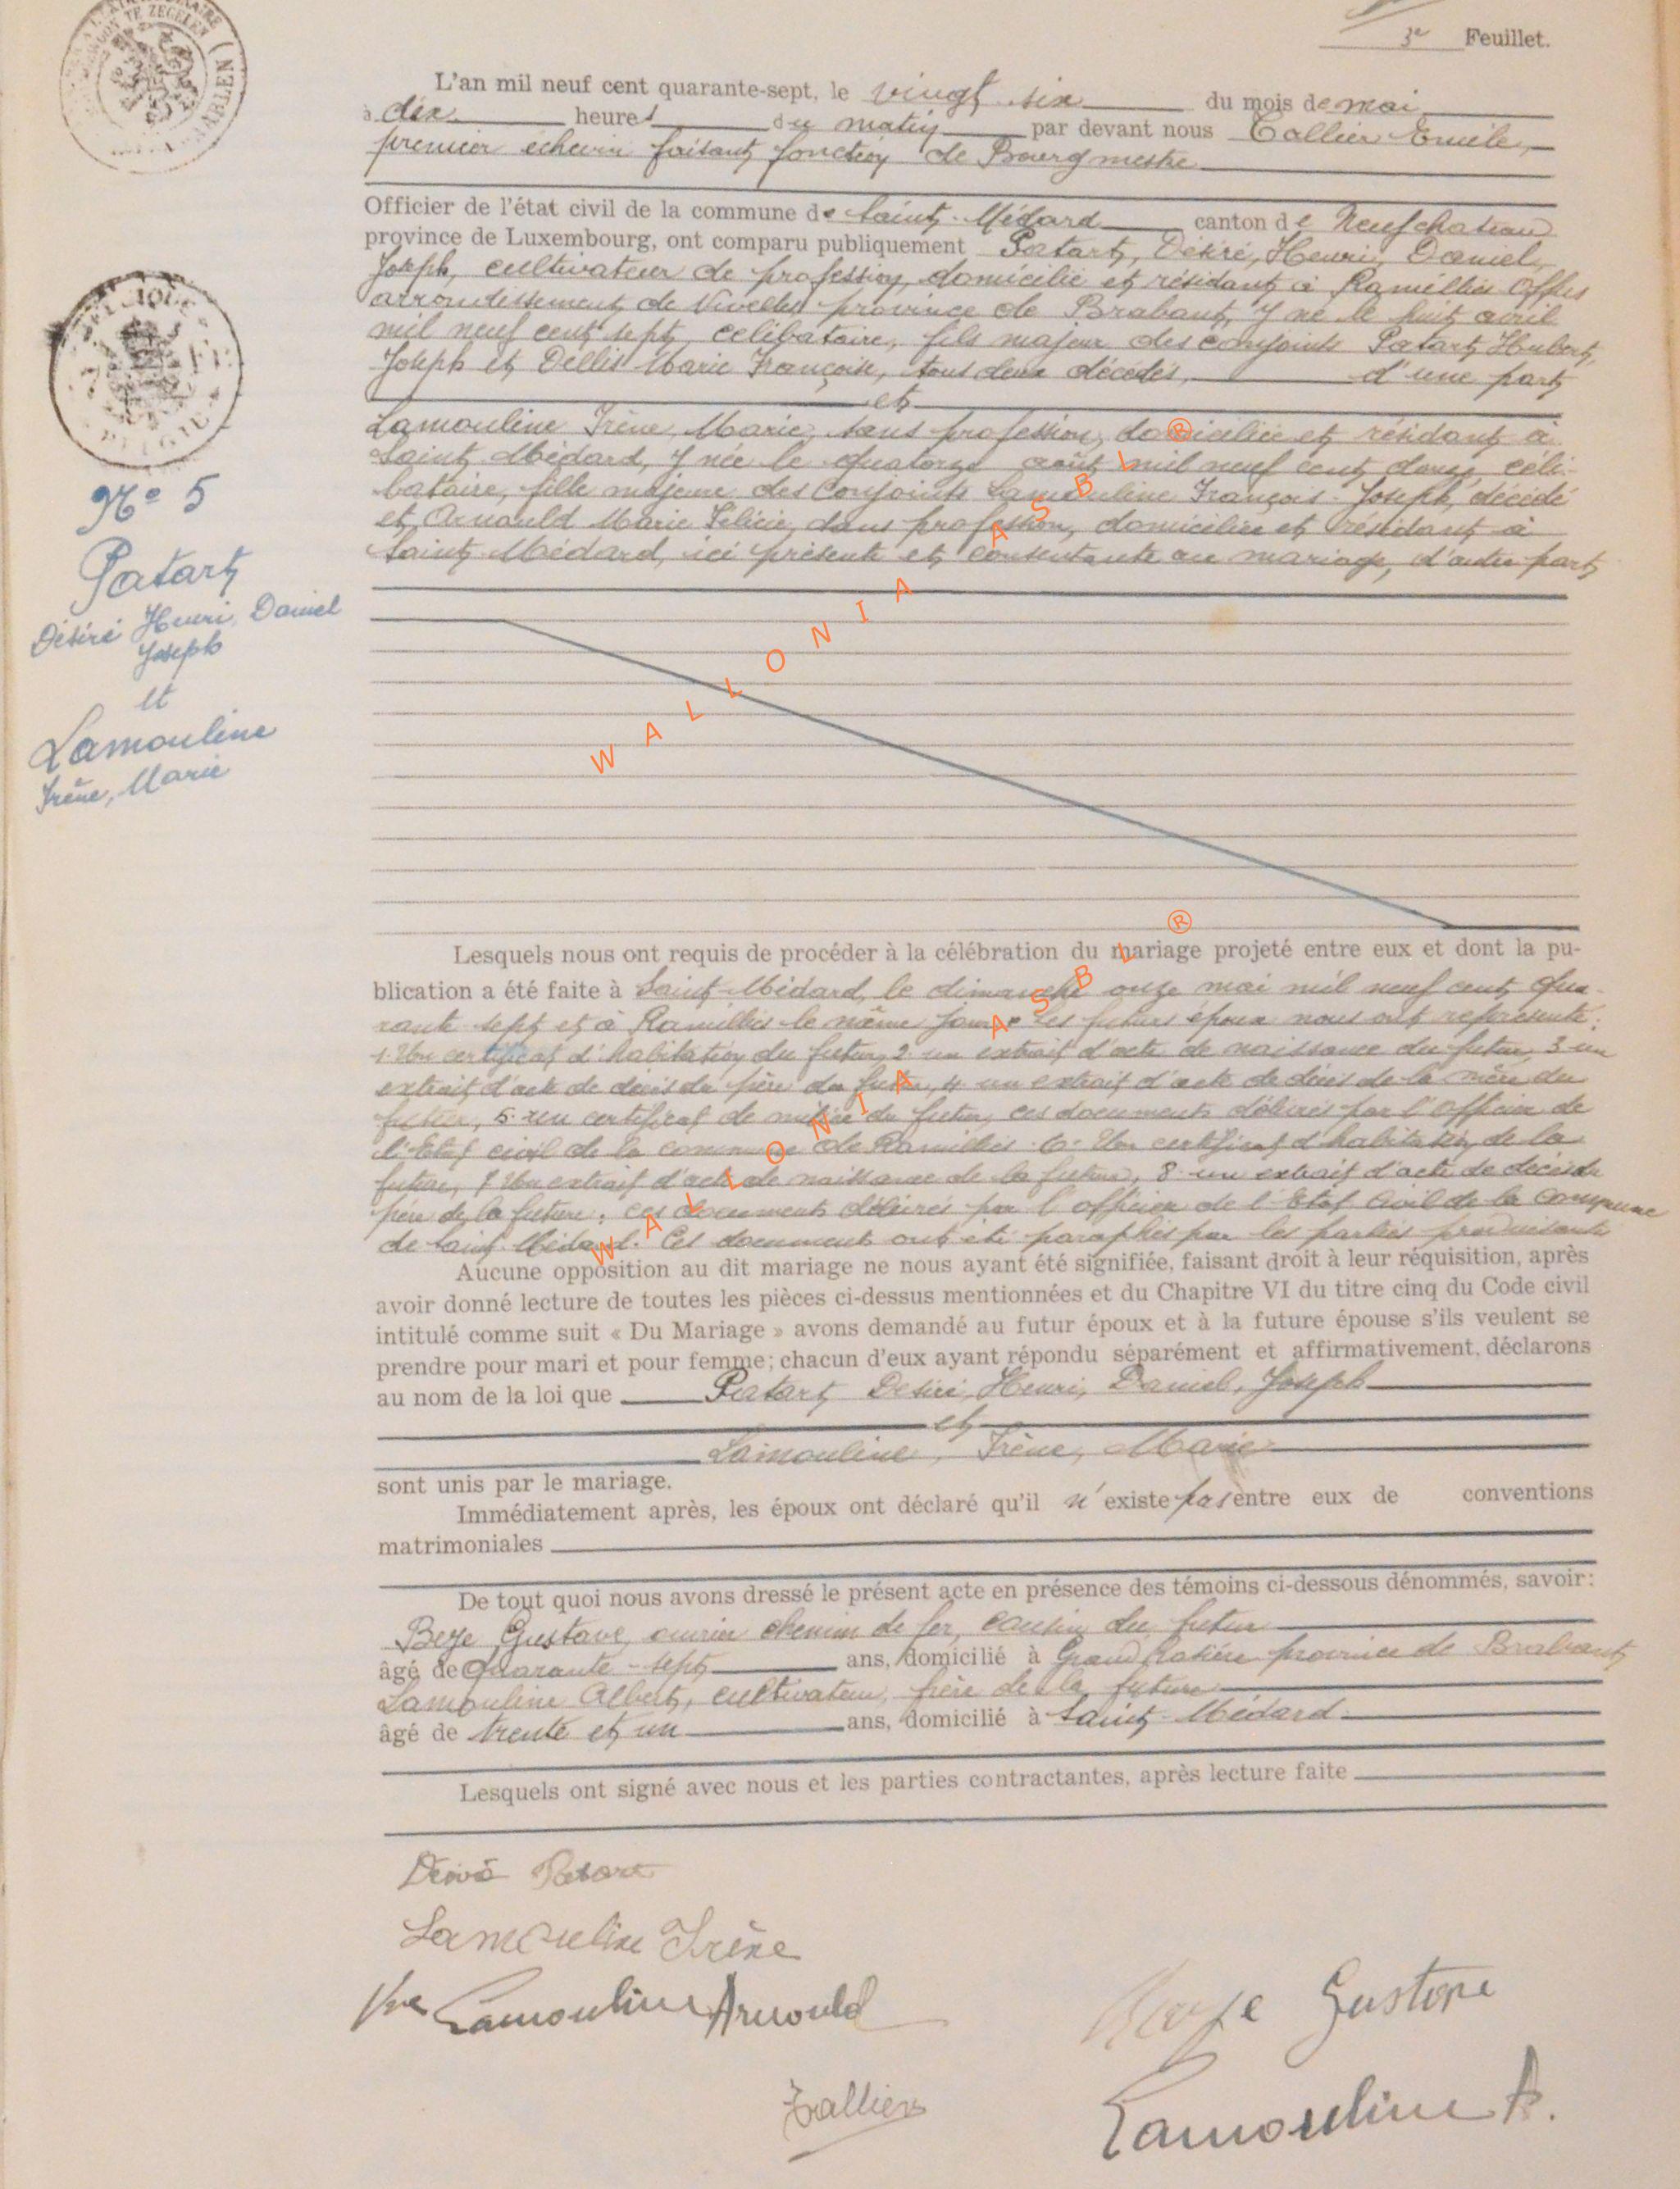 3e Feuillet.
L'an mil neuf cent quarante-sept, le vingt six du mois de mai
à dix heures du matin par devant nous Tallier Emile,
premier échevin faisant fonction de Bourgmestre
Officier de l'état civil de la commune de Saint-Médard canton de Neufchateau
province de Luxembourg, ont comparu publiquement Patart, Désiré, Henri, Daniel,
Joseph, cultivateur de profession, domicilié et résidant à Ramillies Offus
arrondissement de Nivelles province de Brabant, y né le huit avril
mil neuf cent sept, célibataire, fils majeur des conjoints Patart Hubert,
Joseph et Dellis Marie Françoise, tous deux décédés, d'une part
et
Lamouline Irène, Marie, sans profession, domiciliée et résidant à
Saint-Médard, y née le quatorze août mil neuf cent douze, céli-
bataire, fille majeure des conjoints Lamouline François-Joseph, décédé
et Arnould Marie Félicie, sans profession, domiciliée et résidant à
Saint-Médard, ici présente et consentante au mariage, d'autre part
No 5
Patart
Désiré Henri, Daniel
Joseph
et
Lamouline
Irène, Marie
WALLONIA ASBL ®
Lesquels nous ont requis de procéder à la célébration du mariage projeté entre eux et dont la pu-
blication a été faite à Saint-Médard, le dimanche onze mai mil neuf cent qua-
rante sept et à Ramillies le même jour. Les futurs époux nous ont représenté :
1. Un certificat d'habitation du futur, 2. un extrait d'acte de naissance du futur, 3 un
extrait d'acte de décès du père du futur, 4 un extrait d'acte de décès de la mère du
futur, 5. un certificat de milice du futur, ces documents délivrés par l'officier de
l'Etat civil de la commune de Ramillies. 6. Un certificat d'habitation de la
future, 7 Un extrait d'acte de naissance de la future, 8. un extrait d'acte de décès du
père de la future ; ces documents délivrés par l'officier de l'Etat Civil de la Commune
de Saint-Médard. Ces documents ont été paraphés par les parties produisantes
WALLONIA ASBL ®
Aucune opposition au dit mariage ne nous ayant été signifiée, faisant droit à leur réquisition, après
avoir donné lecture de toutes les pièces ci-dessus mentionnées et du Chapitre VI du titre cinq du Code civil
intitulé comme suit « Du Mariage » avons demandé au futur époux et à la future épouse s'ils veulent se
prendre pour mari et pour femme; chacun d'eux ayant répondu séparément et affirmativement, déclarons
au nom de la loi que Patart, Désiré, Henri, Daniel, Joseph
et
Lamouline, Irène, Marie
sont unis par le mariage.
Immédiatement après, les époux ont déclaré qu'il n'existe pas entre eux de conventions
matrimoniales
De tout quoi nous avons dressé le présent acte en présence des témoins ci-dessous dénommés, savoir:
Beye Gustave, ouvrier chemin de fer, cousin du futur
âgé de quarante-sept ans, domicilié à Grand Rosière province de Brabant
Lamouline Albert, cultivateur, frère de la future
âgé de trente et un ans, domicilié à Saint-Médard
Lesquels ont signé avec nous et les parties contractantes, après lecture faite
Désiré Patart
Lamouline Irène
Vve Lamouline Arnould
Gustave
Tallier
Lamouline A.